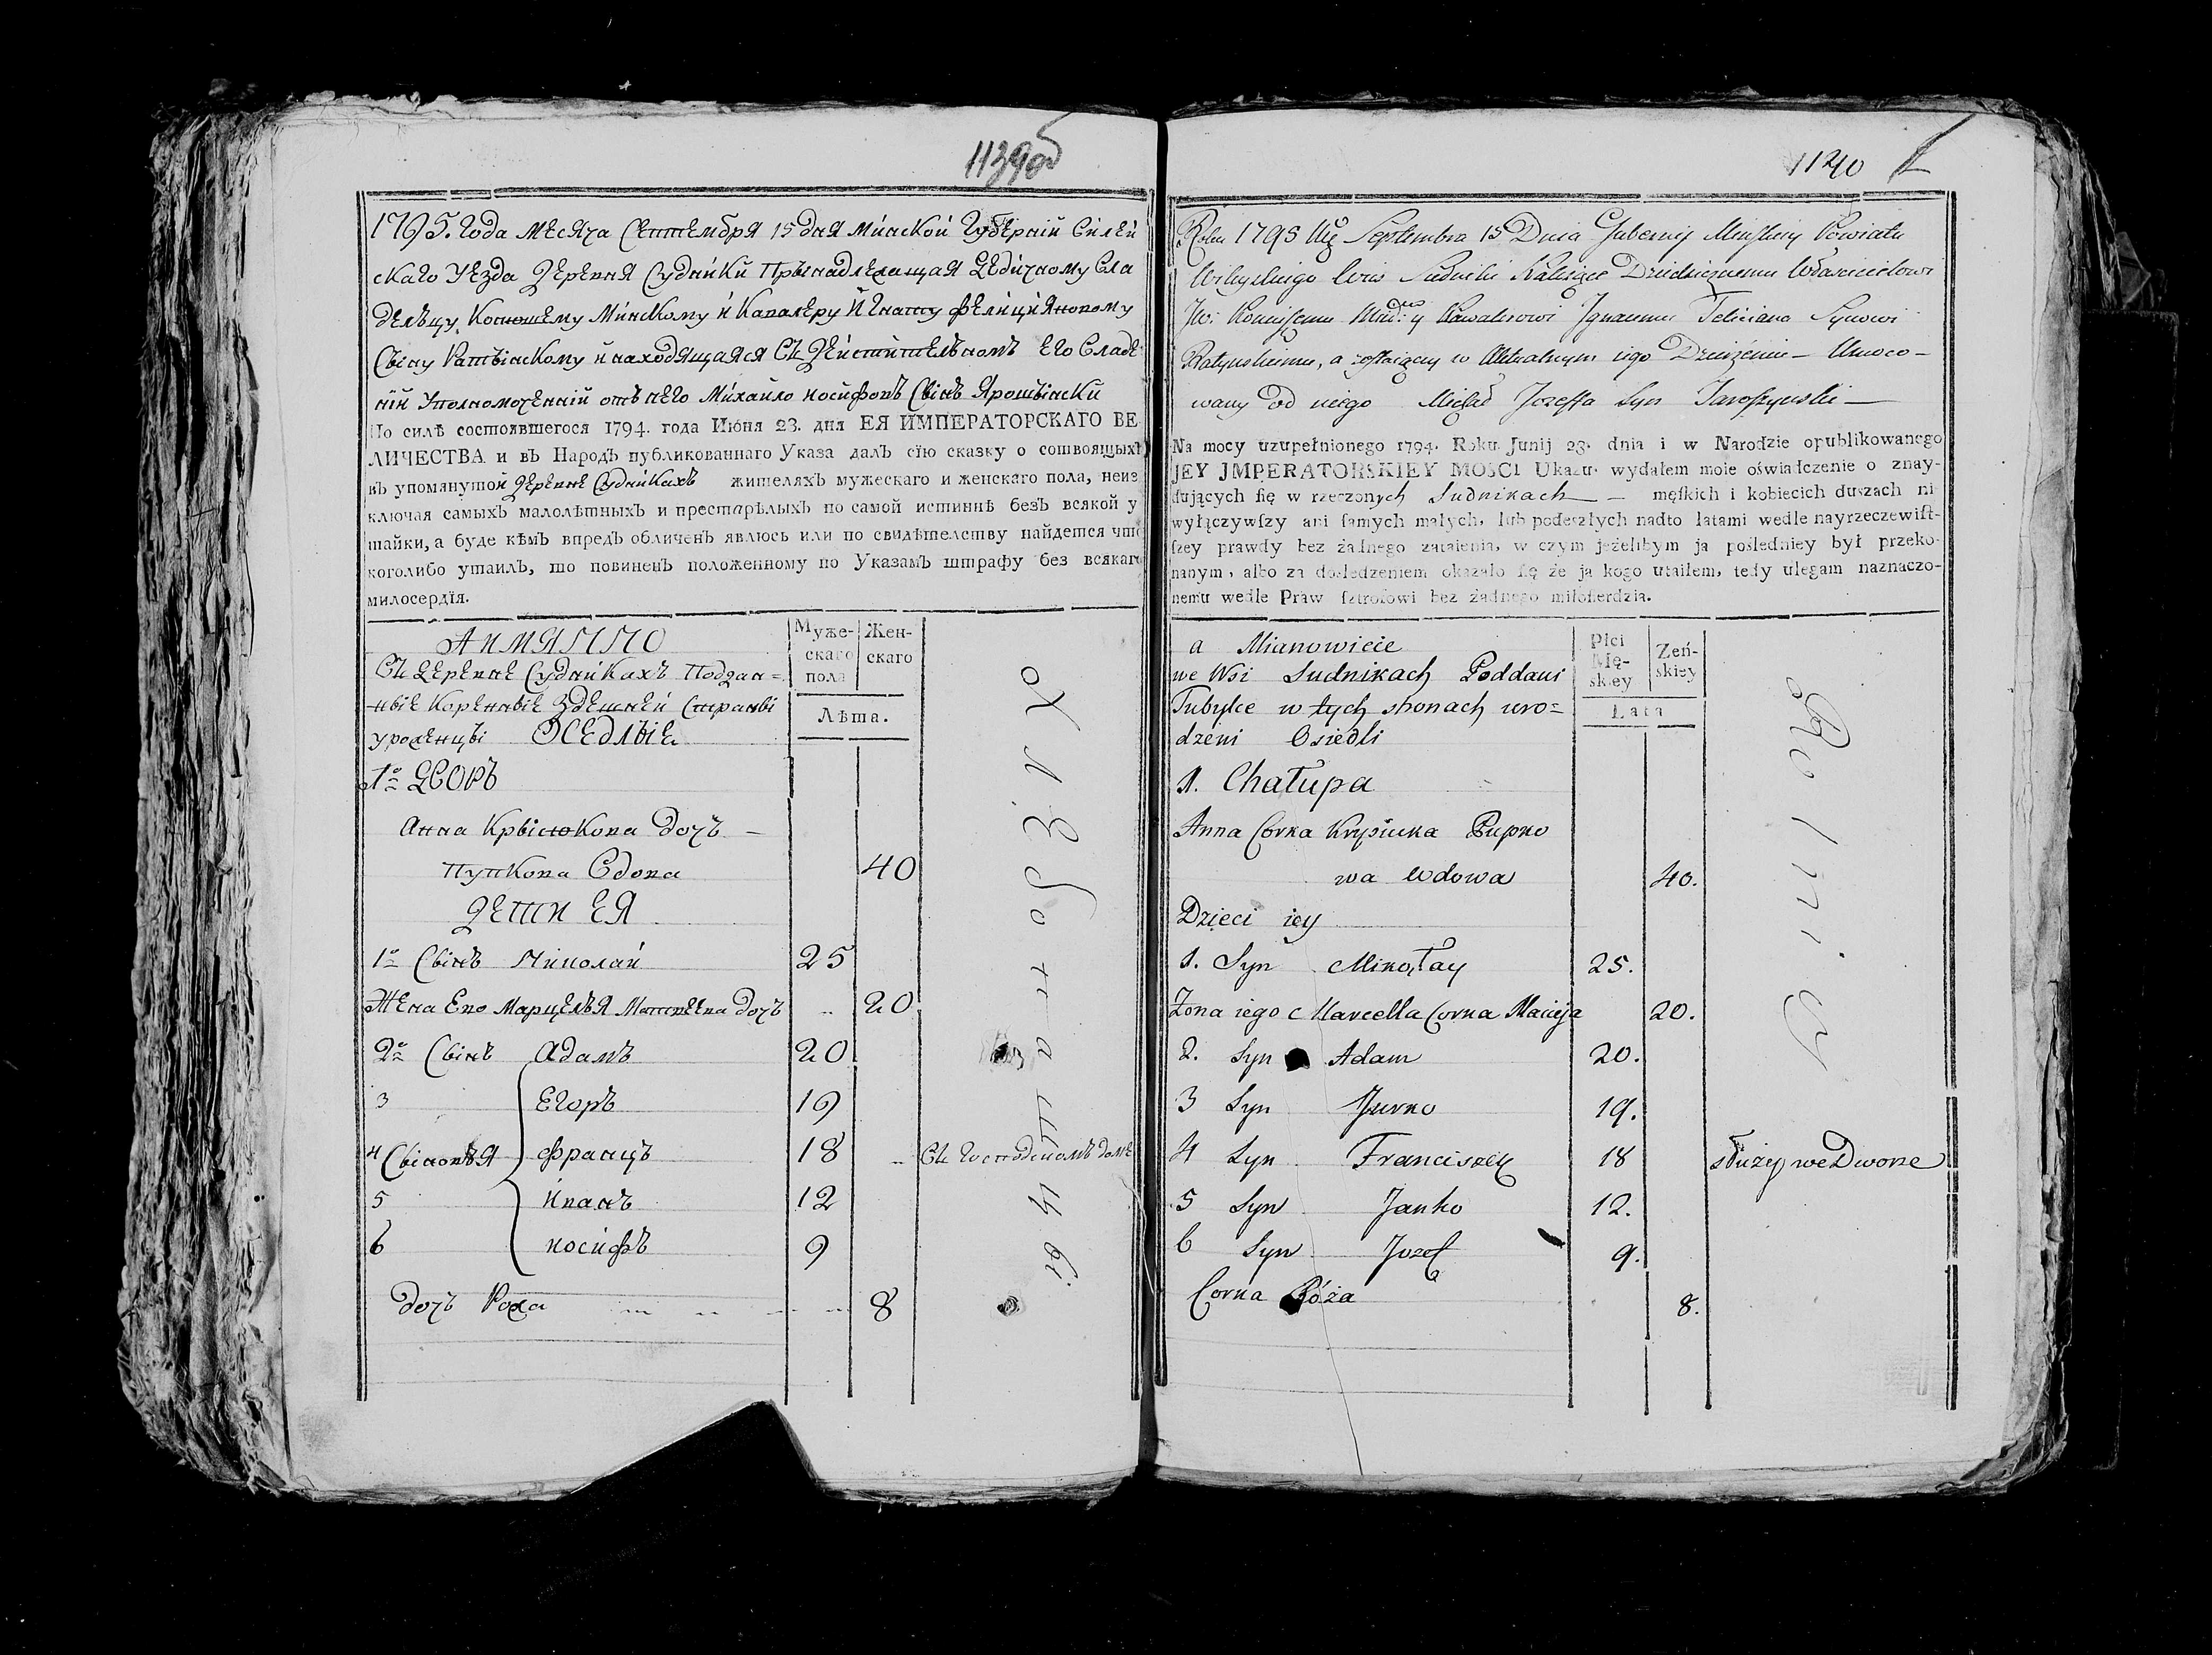 1139об
1795. Года месяца Септембря 15 дня Минской Губерний Вилей
скаго Уезда деревня Судники Прынадлежащая Дедичному Вла
делъцу, Конюшему Минскому и Кавалеру Игнату Фелицияновому
Сыну Ратынскому и находящаяся въ действителномъ его Владе
нии Уполномоченний отъ него Михайло Иосифовъ Сынъ Ярошынски
По силѣ состоявшегося 1794. года Июня 23. дня ЕЯ ИМПЕРАТОРСКАГО ВЕ
ЛИЧЕСТВА и въ Народъ публикованнаго Указа далъ сїю сказку о состоящыхъ
въ упомянутой деревне Судникахъ жителяхъ мужескаго и женскаго пола, неиз
ключая самыхъ малолѣтныхъ и престарѣлыхъ по самой истиннѣ безъ всякой у
тайки, а буде кѣмъ впредъ обличенъ явлюсь или по свидѣтелству найдется что
коголибо утаилъ, то повиненъ положенному по Указамъ штрафу без всякаго
милосердїя.
Аимянно
Въ деревне Судникахъ Поддан=
ные Коренные Здешней Страны
уроженцы Оседлые
Муже-
скаго
пола
Жен-
скаго
Лѣта.
1е Дворъ
Анна Крысюкова дочъ —
Пупкова Вдова 40
Дети ея
1е Сынъ Николай 25
Жена Его Марцеля Матвеева дочъ 20
2е Сынъ Адамъ 20
3 Егоръ 19
4 Сыновя Францъ 18 въ Господскомъ доме
5 Иванъ 12
6 Иосифъ 9
дочъ Рожа 8
1140
Roku 1795 Septembra 15 Dnia Gubernij Minskiey Powiatu
Wileyskiego Wies Sudniki Należące Dziedzicznemu Właścicielowi
JW: Koniuszemu y Kawalerowi Ignacemu Feliciana Synowi
Ratynskiemu, a zostaiący w Aktualnym iego Dzierżeniu — Umoco —
wany od niego Michał Jozeffa Syn Jaroszynski —
Na mocy uzupełnionego 1794. Roku. Junij 23. dnia i w Narodzie opublikowanego
JEY JMPERATORSKIEY MOSCI Ukazu. wydałem moie oświadczenie o znay-
dujących się w rzeczonych Sudnikach — męſkich i kobiecich duszach ni
wyłączywſzy ani ſamych małych, lub podeszłych nadto latami wedle nayrzeczewiſt-
ſzey prawdy bez żadnego zataienia, w czym jeżelibym ja poſledniey był przeko-
nanym, albo za dośledzeniem okazało ſię że ja kogo utaiłem, tedy ulegam naznaczo-
nemu wedle Praw ſztrofowi bez żadnego miłoſierdzia.
a Mianowicie
we Wsi Sudnikach Poddani
Tubylce w tych stronach uro=
dzeni Osiedli
Płci
Mę-
skiey
Zeń-
skiey
Lata
1. Chałupa
Anna Corka Krysiuka Pupko
wa Wdowa 40.
Dzieci iey
1. Syn Mikołay 25.
Żona iego Marcella Corka Macieja 20.
2. Syn Adam 20.
3 Syn Jurko 19.
4 Syn Franciszek 18 służy we Dworze
5 Syn Janko 12.
6 Syn Jozef 9.
Corka Róża 8.
Rolnicy